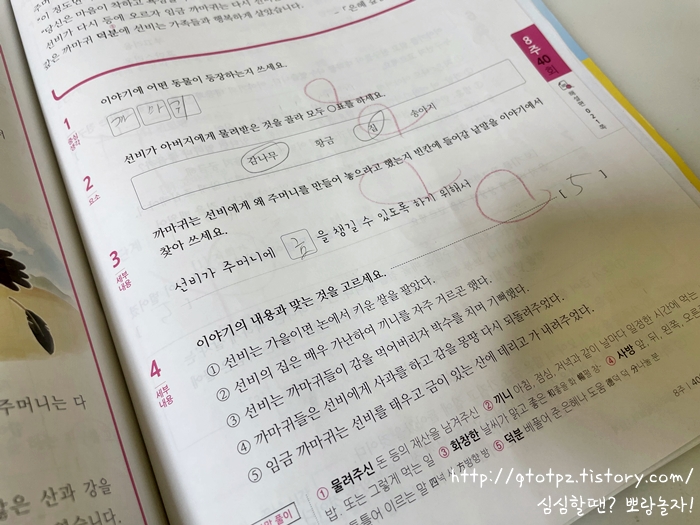 선비가 다시 등에 오르자 임금 까마귀는 다시
같은 까마귀 덕분에 선비는 가족들과 행복하게 살았습니다.
8주
40
회
1
중심
생각
이야기에 어떤 동물이 등장하는지 쓰세요.
까 마 귀
2
요소
선비가 아버지에게 물려받은 것을 골라 모두 ○표를 하세요.
감나무 황금 집 송아지
3
세부
내용
까마귀는 선비에게 왜 주머니를 만들어 놓으라고 했는지 빈칸에 들어갈 낱말을 이야기에서
찾아 쓰세요.
선비가 주머니에 금 을 챙길 수 있도록 하기 위해서
4
세부
내용
이야기의 내용과 맞는 것을 고르세요.
2, 5
① 선비는 가을이면 논에서 키운 쌀을 팔았다.
② 선비의 집은 매우 가난하여 끼니를 자주 거르곤 했다.
③ 선비는 까마귀들이 감을 먹어버리자 박수를 치며 기뻐했다.
④ 까마귀들은 선비에게 사과를 하고 감을 몽땅 다시 되돌려주었다.
⑤ 임금 까마귀는 선비를 태우고 금이 있는 산에 데리고 가 내려주었다.
① 물려주신 돈 등의 재산을 남겨주신 ② 끼니 아침, 점심, 저녁과 같이 날마다 일정한 시간에 먹는
밥. 또는 그렇게 먹는 일 ③ 화창한 날씨가 맑고 좋은 ④ 사방 앞, 뒤, 왼쪽, 오른
⑤ 덕분 베풀어 준 은혜나 도움
8주 40
주머니는 다
산과 강을
http://qtotpz.tistory.com/
심심할땐? 뽀람놀자!